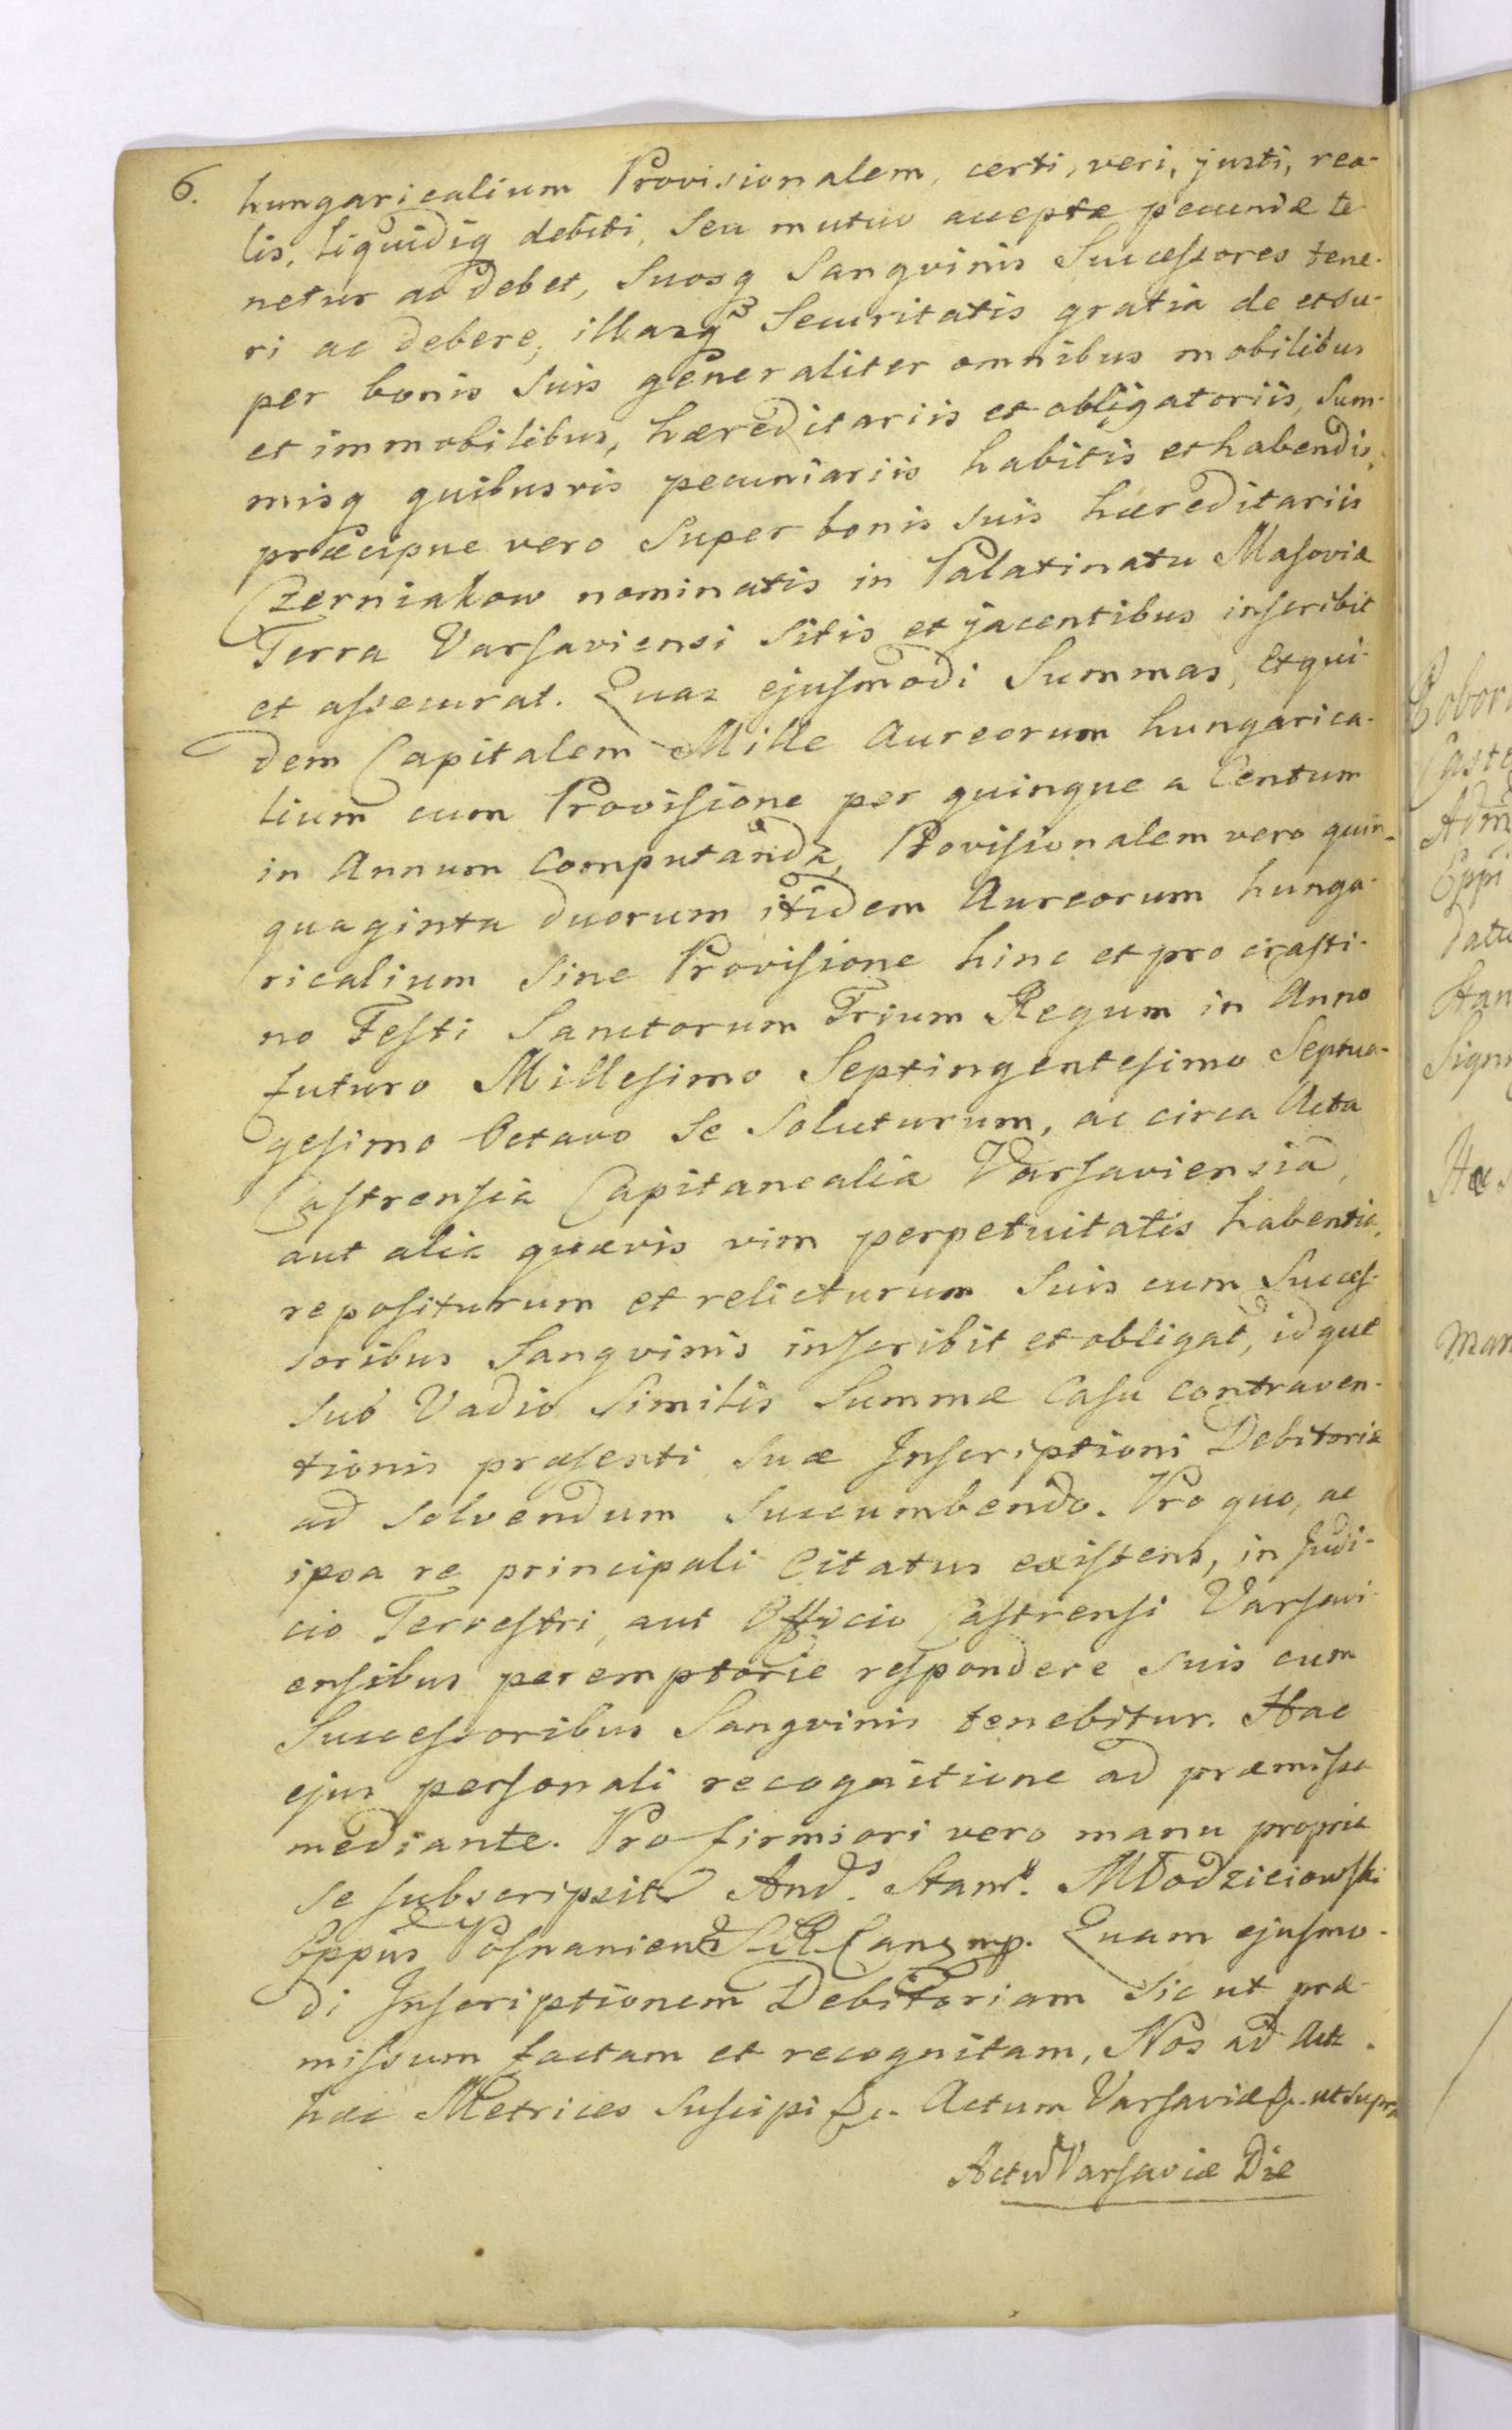 6. hungaricalium Provisionalem, certi, veri, justi, rea-
lis, liquidiq debiti, Seu mutuo acceptæ pecuniæ te
netur ac debet, Suosq Sangvinis Successores tene-
ri ac debere, illasq Securitatis gratia de et su-
per bonis suis generaliter omnibus mobilibus
et immobilibus, hæreditariis et obligatoriis, Sum-
misq quibusvis pecuniariis habitis et habendis,
præcipue vero Super bonis suis hæreditariis
Czerniakow nominatis in Palatinatu Masoviæ
Terra Varsaviensi Sitis et jacentibus inscribit
et assecurat. Quas ejusmodi Summas, et qui-
dem Capitalem Mille Aureorum hungarica-
lium cum Provisione per quinque a Centum
in Annum Computanda, Provisionalem vero quin-
quaginta duorum itidem Aureorum hunga-
ricalium Sine Provisione hinc et pro crasti-
no Festi Sanctorum Trium Regum in Anno
futuro Millesimo Septingentesimo Septua-
gesimo Octavo Se Soluturum, ac circa Acta
Castrensia Capitanealia Varsaviensia,
aut alia quævis vim perpetuitatis habentia,
repositurum et relicturum Suis cum Succes-
soribus Sangvinis inscribit et obligat, idque
sub Vadio Similis Summæ Casu contraven-
tionis præsenti Suæ Inscriptioni Debitoriæ
ad solvendum Succumbendo. Pro quo, ac
ipsa re principali Citatus existens, in Judi-
cio Terrestri, aut Officio Castrensi Varsavi-
ensibus peremptorie respondere suis cum
Successoribus Sangvinis tenebitur. Hac
ejus personali recognitione ad præmissa
mediante. Pro firmiori vero manu propria
se subscripsit Andˢ. Stanˢ. Młodzieiowski
Eppus Posnaniens S R Canz mp. Quam ejusmo-
di Inscriptionem Debitoriam Sic ut præ-
missum factam et recognitam, Nos ad Acta
hæc Metrices Suscipi &c. Actum Varsaviæ &. ut supra
Actũ Varsaviæ Die
Castr
Eppi
datu
Stan
Sign
Man